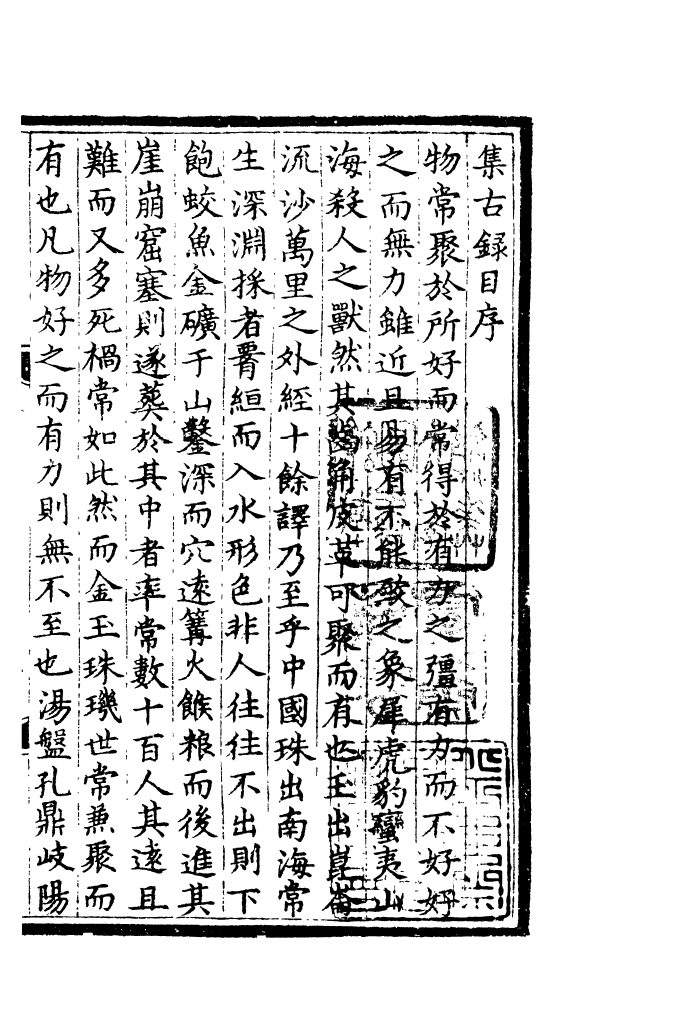 集古録目序
物常聚於所好而常得於有力之彊有力而不好好
之而無力雖近且易有不能致之象犀虎豹蠻夷山
海殺人之獸然其齒角皮革可聚而有也玉出崑崙
流沙萬里之外經十餘譯乃至乎中國珠出南海常
生深淵採者腰絙而入水形色非人往往不出則下
飽蛟魚金礦于山鑿深而穴遠篝火餱粮而後進其
崖崩窟塞則遂葬於其中者率常數十百人其遠且
難而又多死禍常如此然而金玉珠璣世常兼聚而
有也凡物好之而有力則無不至也湯盤孔鼎岐陽